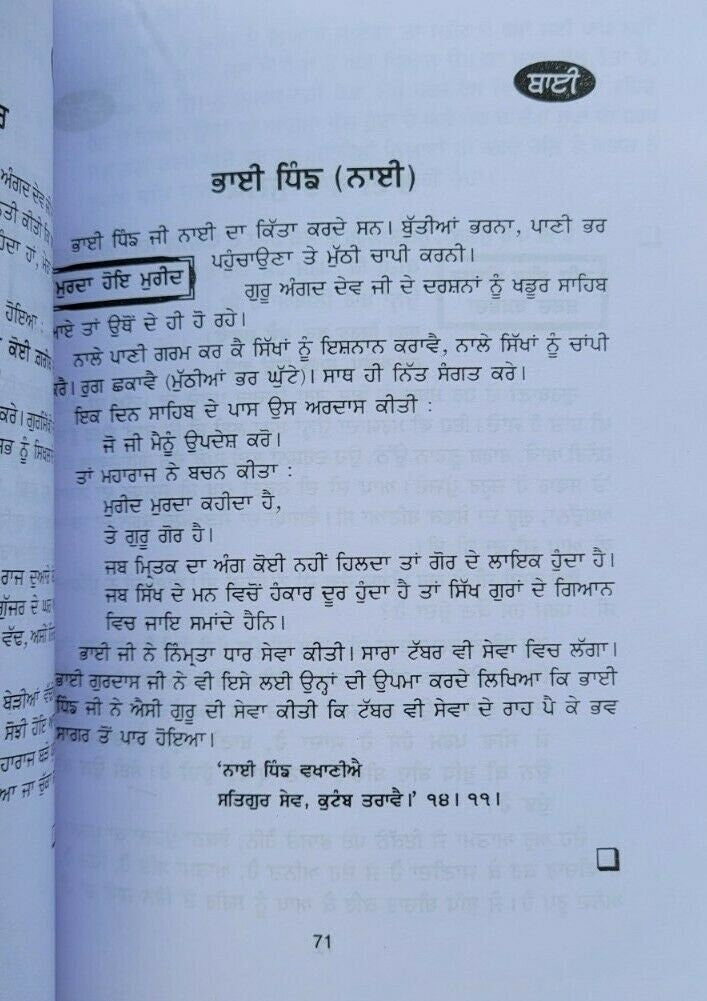 ਬਾਈ
ਭਾਈ ਧਿੰਙ (ਨਾਈ)
ਭਾਈ ਧਿੰਙ ਜੀ ਨਾਈ ਦਾ ਕਿੱਤਾ ਕਰਦੇ ਸਨ। ਬੁੱਤੀਆਂ ਭਰਨਾ, ਪਾਣੀ ਭਰ
ਪਹੁੰਚਾਉਣਾ ਤੇ ਮੁੱਠੀ ਚਾਪੀ ਕਰਨੀ।
ਮੁਰਦਾ ਹੋਇ ਮੁਰੀਦ
ਗੁਰੂ ਅੰਗਦ ਦੇਵ ਜੀ ਦੇ ਦਰਸ਼ਨਾਂ ਨੂੰ ਖਡੂਰ ਸਾਹਿਬ
ਆਏ ਤਾਂ ਉਥੋਂ ਦੇ ਹੀ ਹੋ ਰਹੇ।
ਨਾਲੇ ਪਾਣੀ ਗਰਮ ਕਰ ਕੈ ਸਿੱਖਾਂ ਨੂੰ ਇਸ਼ਨਾਨ ਕਰਾਵੈ, ਨਾਲੇ ਸਿੱਖਾਂ ਨੂੰ ਚਾਂਪੀ
ਕਰੈ। ਰੁਗ ਛਕਾਵੈ (ਮੁੱਠੀਆਂ ਭਰ ਘੁੱਟੇ)। ਸਾਥ ਹੀ ਨਿੱਤ ਸੰਗਤ ਕਰੇ।
ਇਕ ਦਿਨ ਸਾਹਿਬ ਦੇ ਪਾਸ ਉਸ ਅਰਦਾਸ ਕੀਤੀ :
ਜੋ ਜੀ ਮੈਨੂੰ ਉਪਦੇਸ਼ ਕਰੋ।
ਤਾਂ ਮਹਾਰਾਜ ਨੇ ਬਚਨ ਕੀਤਾ :
ਮੁਰੀਦ ਮੁਰਦਾ ਕਹੀਦਾ ਹੈ,
ਤੇ ਗੁਰੂ ਗੋਰ ਹੈ।
ਜਬ ਮ੍ਰਿਤਕ ਦਾ ਅੰਗ ਕੋਈ ਨਹੀਂ ਹਿਲਦਾ ਤਾਂ ਗੋਰ ਦੇ ਲਾਇਕ ਹੁੰਦਾ ਹੈ।
ਜਬ ਸਿੱਖ ਦੇ ਮਨ ਵਿਚੋਂ ਹੰਕਾਰ ਦੂਰ ਹੁੰਦਾ ਹੈ ਤਾਂ ਸਿੱਖ ਗੁਰਾਂ ਦੇ ਗਿਆਨ
ਵਿਚ ਜਾਇ ਸਮਾਂਦੇ ਹੈਨਿ।
ਭਾਈ ਜੀ ਨੇ ਨਿੰਮ੍ਰਤਾ ਧਾਰ ਸੇਵਾ ਕੀਤੀ। ਸਾਰਾ ਟੱਬਰ ਵੀ ਸੇਵਾ ਵਿਚ ਲੱਗਾ।
ਭਾਈ ਗੁਰਦਾਸ ਜੀ ਨੇ ਵੀ ਇਸੇ ਲਈ ਉਨ੍ਹਾਂ ਦੀ ਉਪਮਾ ਕਰਦੇ ਲਿਖਿਆ ਕਿ ਭਾਈ
ਧਿੰਙ ਜੀ ਨੇ ਐਸੀ ਗੁਰੂ ਦੀ ਸੇਵਾ ਕੀਤੀ ਕਿ ਟੱਬਰ ਵੀ ਸੇਵਾ ਦੇ ਰਾਹ ਪੈ ਕੇ ਭਵ
ਸਾਗਰ ਤੋਂ ਪਾਰ ਹੋਇਆ।
'ਨਾਈ ਧਿੰਙ ਵਖਾਣੀਐ
ਸਤਿਗੁਰ ਸੇਵ, ਕੁਟੰਬ ਤਰਾਵੈ।' ੧੪। ੧੧।
71